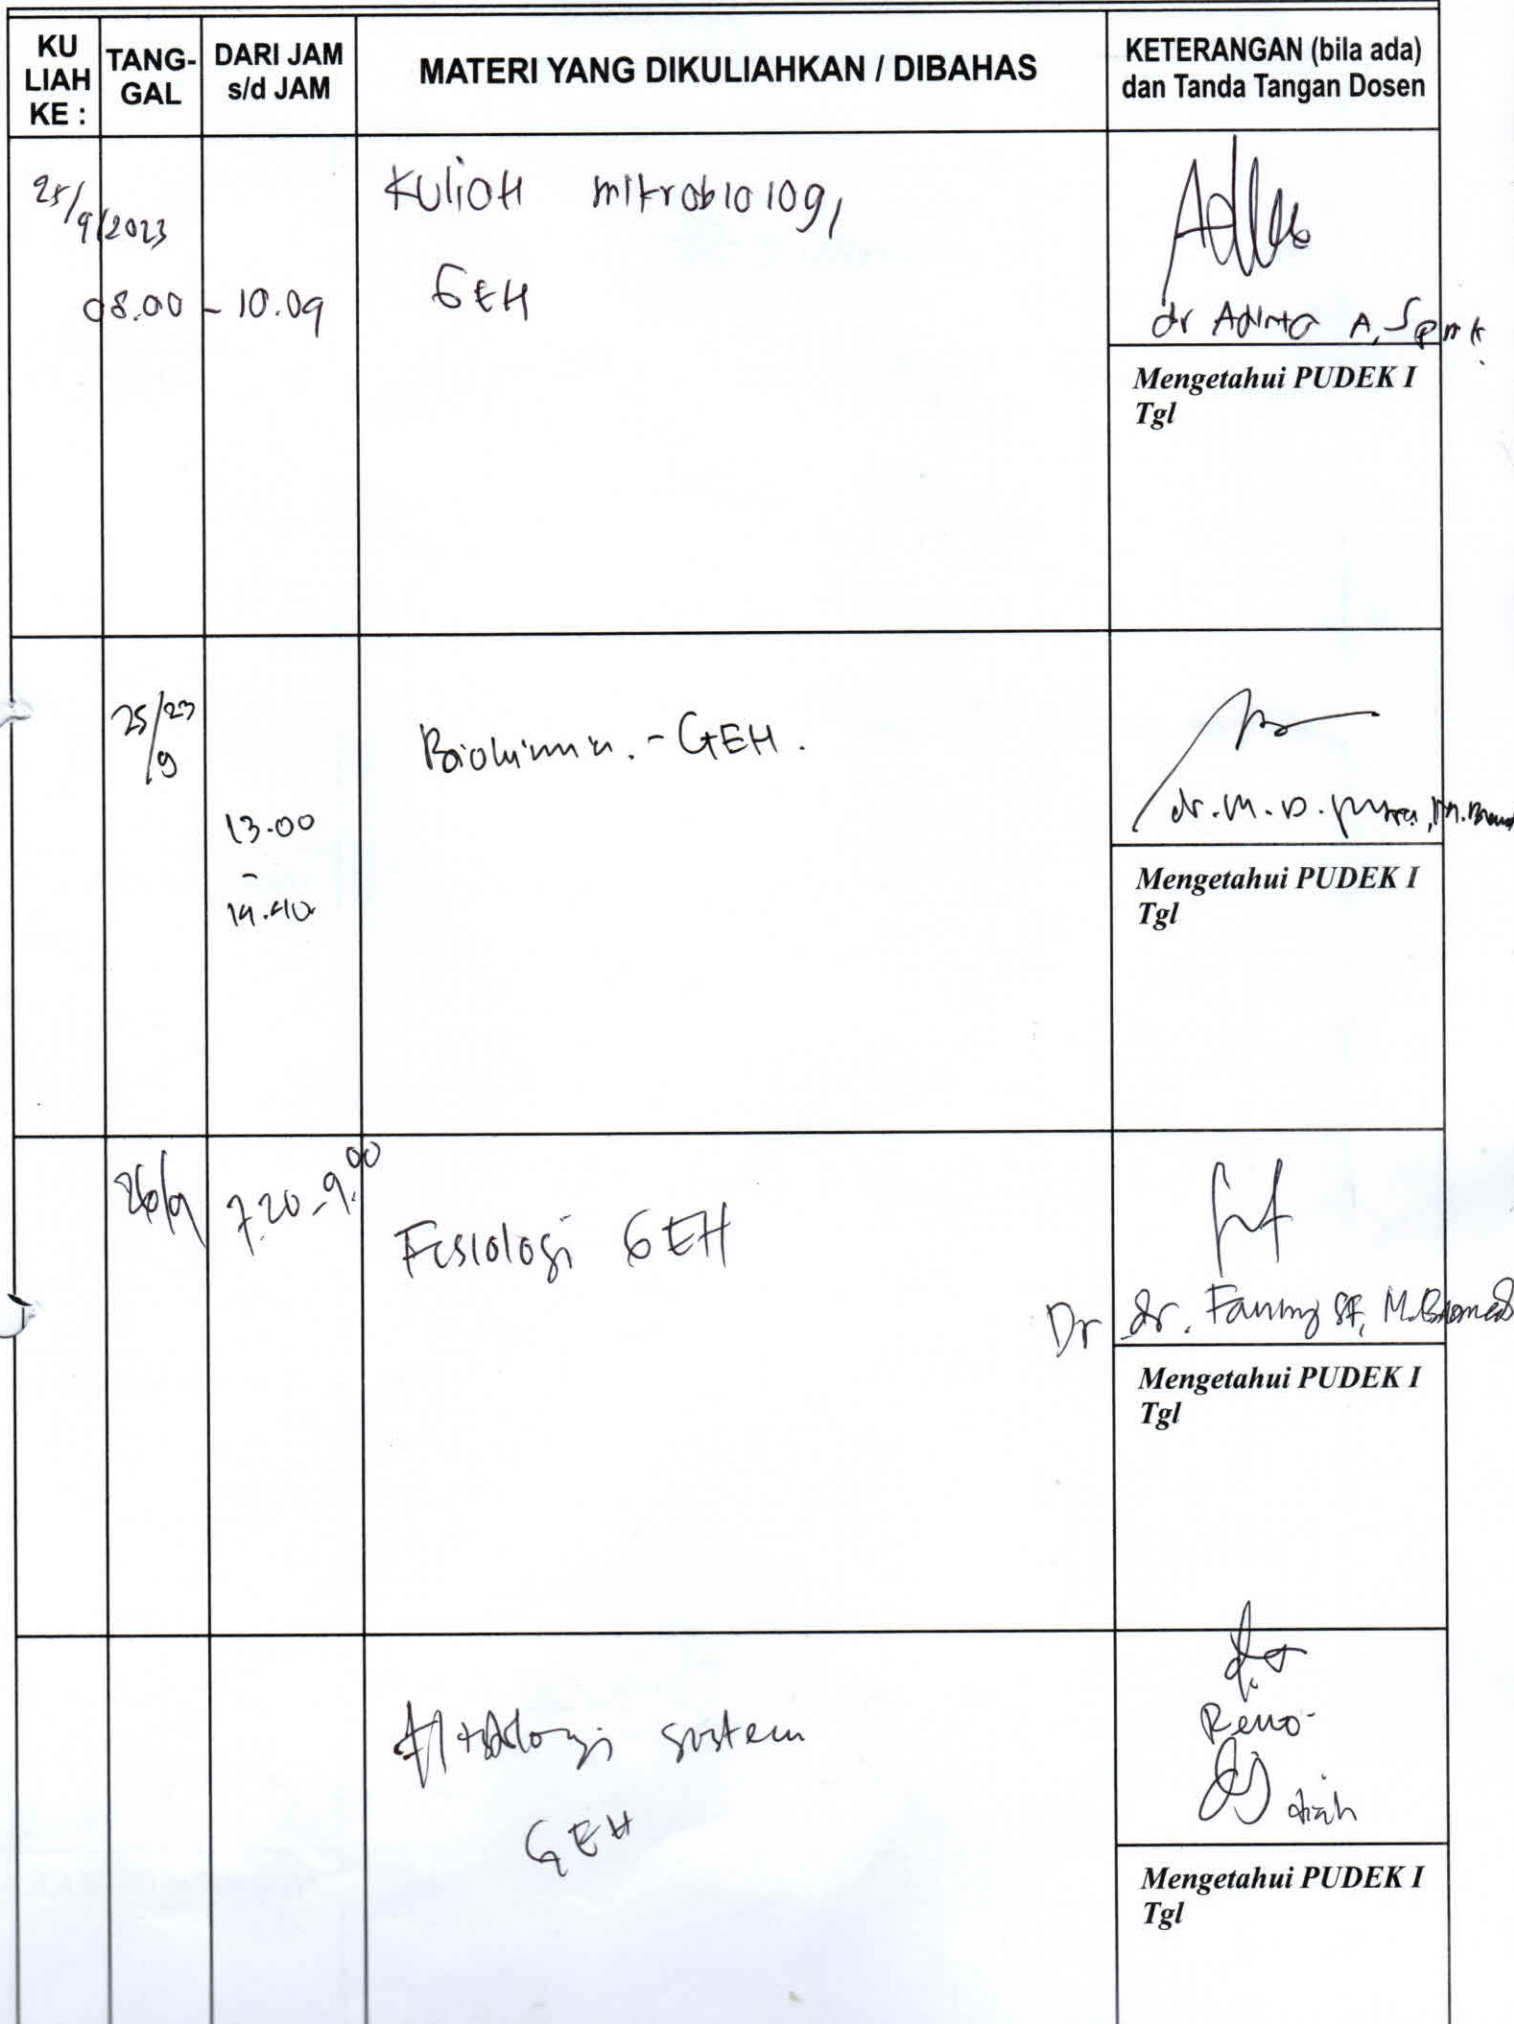 KU LIAH KE :
TANG-GAL
DARI JAM s/d JAM
MATERI YANG DIKULIAHKAN / DIBAHAS
KETERANGAN (bila ada)
dan Tanda Tangan Dosen
25/9/2023
08.00 - 10.00
Kuliah mikrobiologi
GEH
dr A, SpMK
Mengetahui PUDEK I
Tgl
25/9/23
13.00
-
14.40
Biokimia. - GEH.
dr. M. D. Putra, M.Biomed
Mengetahui PUDEK I
Tgl
26/9
7.20 - 9.00
Fisiologi GEH
Dr dr. Fanny SF, M.Biomed
Mengetahui PUDEK I
Tgl
sistem
GEH
Reno
diah
Mengetahui PUDEK I
Tgl